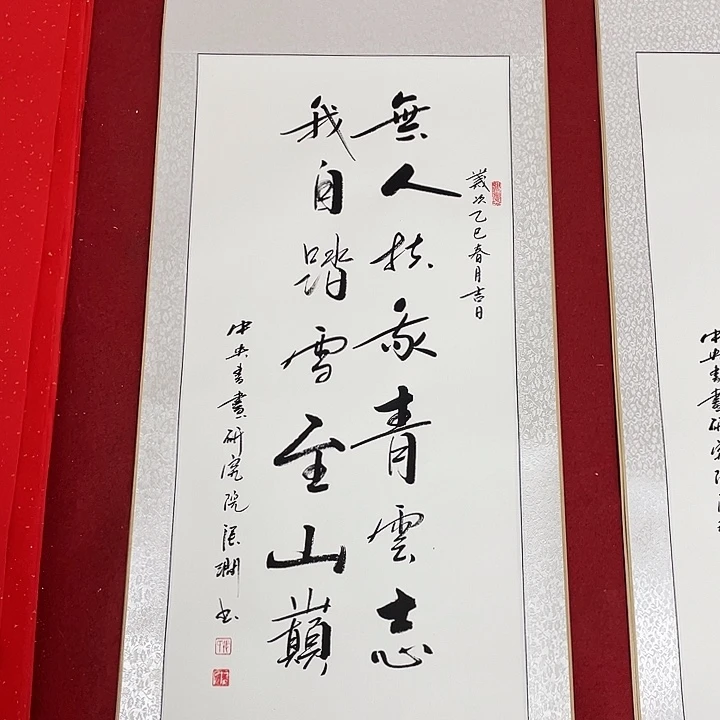 歲次乙巳春月吉日
無人扶我青雲志
我自踏雪至山巔
中央書畫研究院張澗书
中央書畫研究院